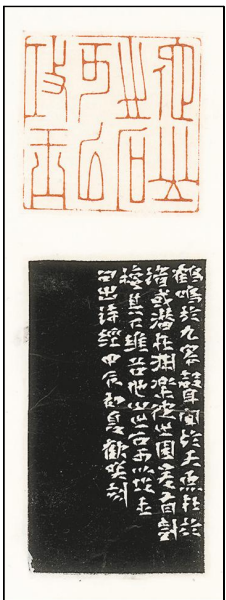 他山
之石
可以
攻玉
鶴鳴於九皋聲聞於天魚在於
渚或潛在淵樂彼之園爰有樹
檀其下維穀他山之石可以攻玉
句出詩經甲辰初夏歡笑刻